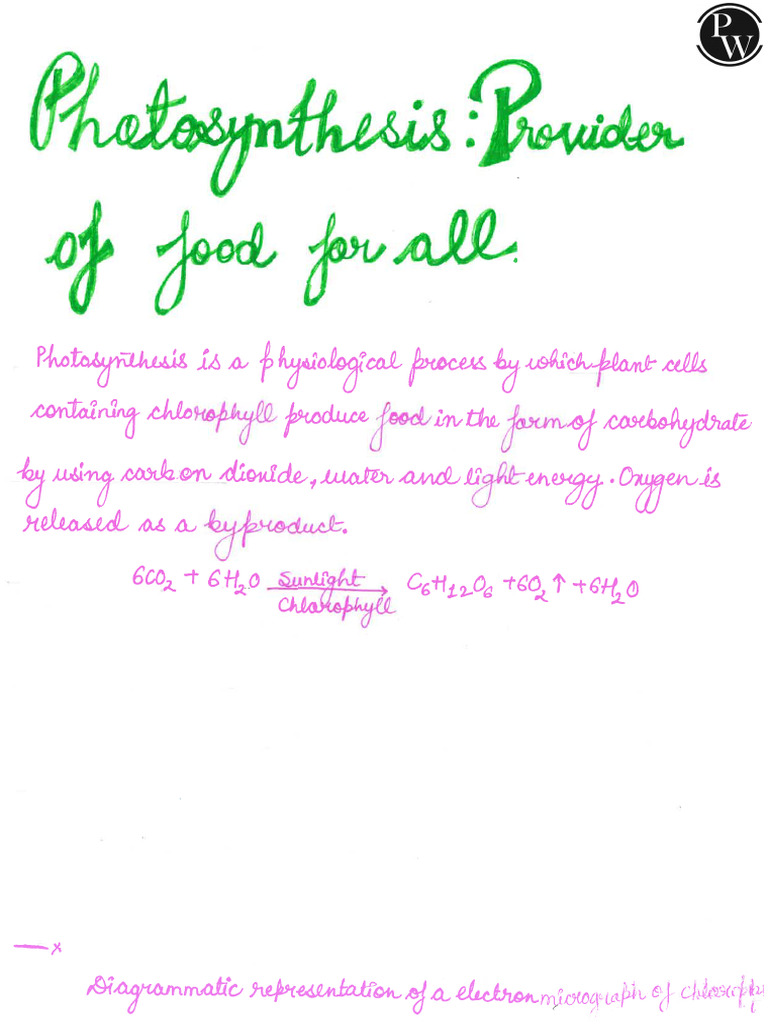 PW
Photosynthesis: Provider
of food for all.
Photosynthesis is a physiological process by which plant cells
containing chlorophyll produce food in the form of carbohydrate
by using carbon dioxide, water and light energy. Oxygen is
released as a byproduct.
6CO₂ + 6H₂O Sunlight → C₆H₁₂O₆ + 6O₂ ↑ + 6H₂O
Chlorophyll
— x
Diagrammatic representation of a electron micrograph of